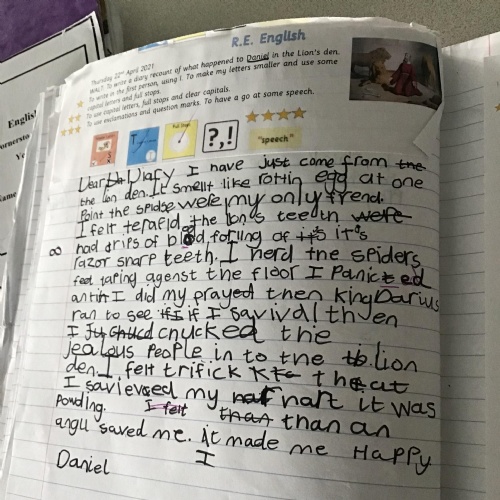 R.E. English
Thursday 22nd April 2021
WALT: To write a diary recount of what happened to Daniel in the Lion's den.
To write in the first person, using I. To make my letters smaller and use some
capital letters and full stops.
To use capital letters, full stops and clear capitals.
To use exclamations and question marks. To have a go at some speech.
Full Stops
?,!
"speech"
Dear Diary I have just come from the
the lion den. It smellt like rottin egg at one
Point the spidse were my only frend.
I felt terafid the lion's teeth were
had drips of blood, forling of it's it's
razor sharp teeth. I herd the spiders
feet taping agenst the floor I panicted
antin I did my prayed then king Darius
ran to see if I if I savivd! thven
I chucked the
jealous people in to the lion
den. I felt trifick that
I savieved my hart it was
Powding. I felt than than an
angll saved me. it made me Happy
Daniel I
Englis
Name